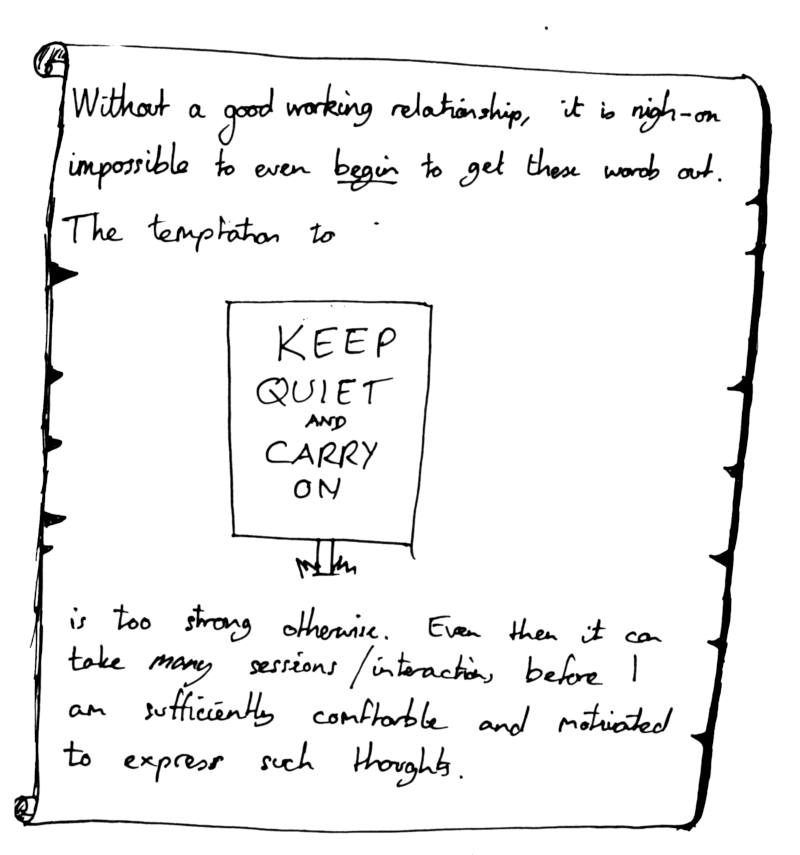 Without a good working relationship, it is nigh-on
impossible to even begin to get these words out.
The temptation to
KEEP
QUIET
AND
CARRY
ON
is too strong otherwise. Even then it can
take many sessions/interactions before I
am sufficiently comftorble and motivated
to express such thoughts.